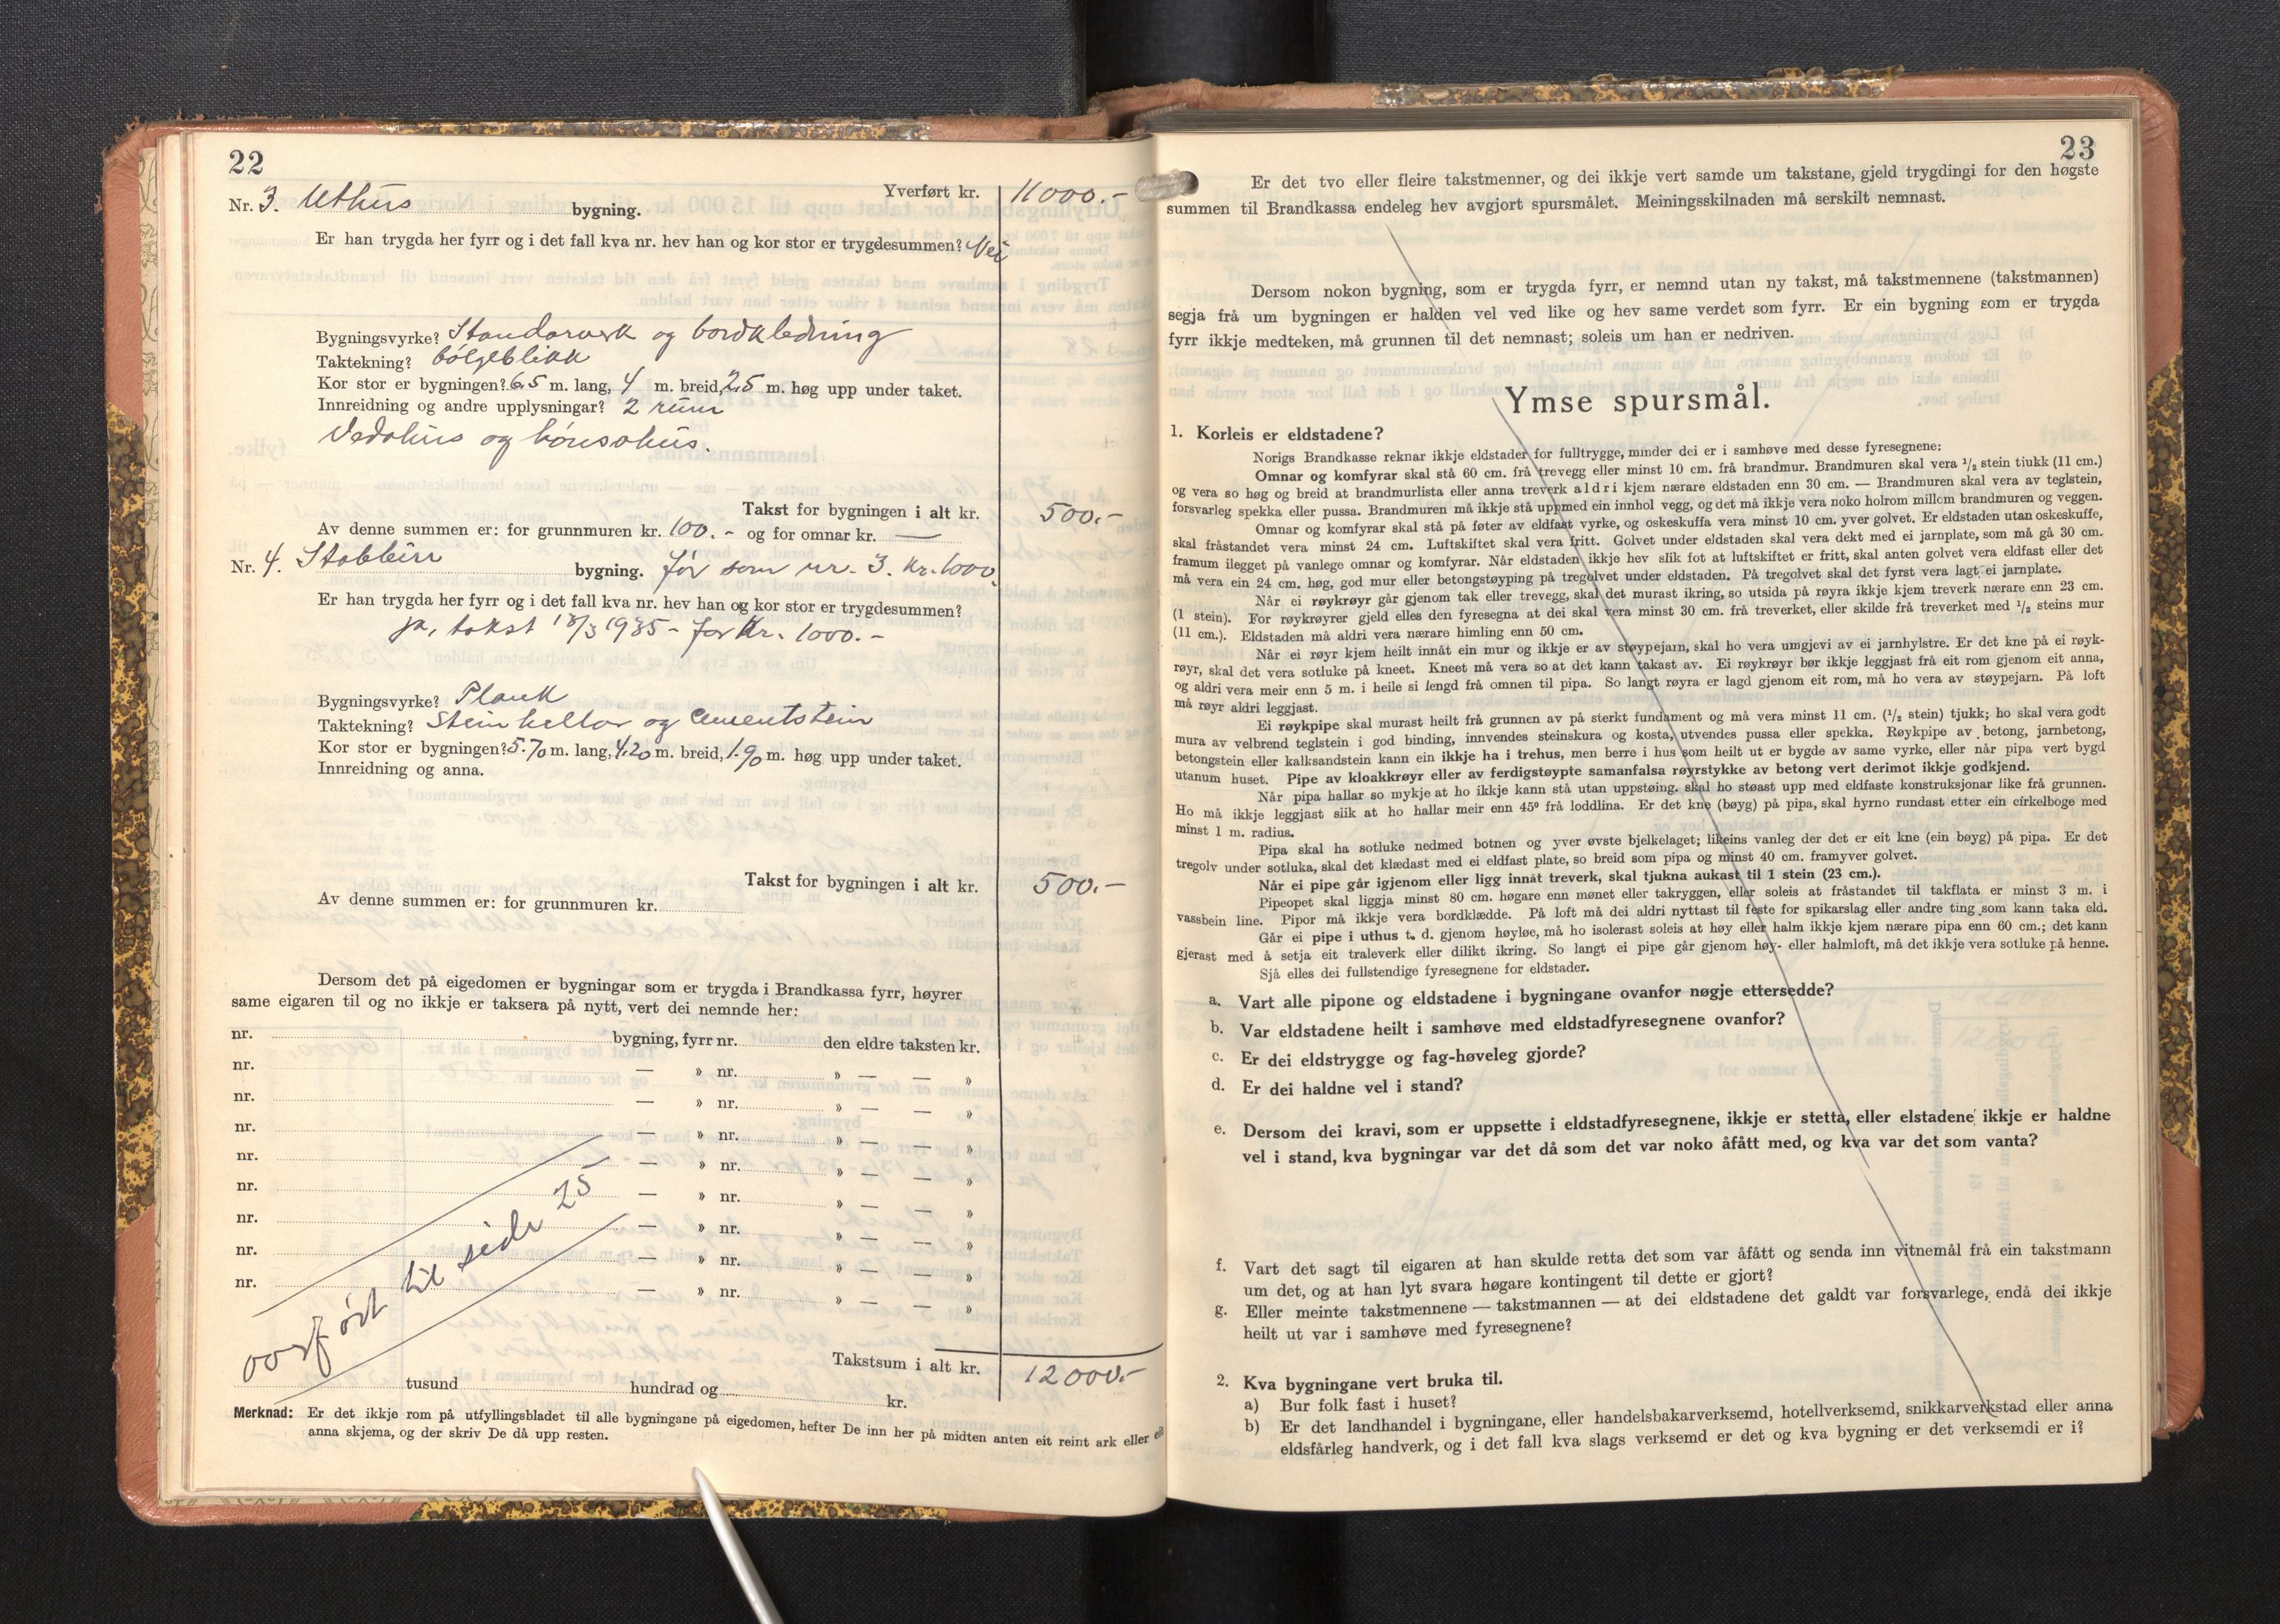 22
Yverført kr. 11000.-
Nr. 3. Uthus bygning.
Er han trygda her fyrr og i det fall kva nr. hev han og kor stor er trygdesummen? Nei
Bygningsvyrke? Standarverk og bordkledning
Taktekning? bölgeblikk
Kor stor er bygningen? 6.5 m. lang, 4 m. breid, 2,5 m. høg upp under taket.
Innreidning og andre upplysningar? 2 rum
Vedahus og hönsahus.
Takst for bygningen i alt kr. 500.-
Av denne summen er: for grunnmuren kr. 100.- og for omnar kr. —
Nr. 4. Stabbur bygning. før som nr. 3. kr. 1000
Er han trygda her fyrr og i det fall kva nr. hev han og kor stor er trygdesummen?
ja, takst 18/3 1935 - for kr. 1000.-
Bygningsvyrke? Plank
Taktekning? Steinhellor og cementstein
Kor stor er bygningen? 5.70 m. lang, 4.20 m. breid, 1.90 m. høg upp under taket.
Innreidning og anna.
Takst for bygningen i alt kr. 500.-
Av denne summen er: for grunnmuren kr.
Dersom det på eigedomen er bygningar som er trygda i Brandkassa fyrr, høyrer
same eigaren til og no ikkje er taksera på nytt, vert dei nemnde her:
nr. bygning, fyrr nr. den eldre taksten kr.
nr. — » nr. » — — »
nr. — » nr. » — — »
nr. — » nr. » — — »
nr. — » nr. » — — »
nr. — » nr. » — — »
nr. — » nr. » — — »
nr. — » nr. » — — »
nr. — » nr. » — — »
overført til side 25
Takstsum i alt kr. 12000.-
tusund hundrad og kr.
Merknad: Er det ikkje rom på utfyllingsbladet til alle bygningane på eigedomen, hefter De inn her på midten anten eit reint ark eller eit
anna skjema, og der skriv De då upp resten.
23
Er det tvo eller fleire takstmenner, og dei ikkje vert samde um takstane, gjeld trygdingi for den høgste
summen til Brandkassa endeleg hev avgjort spursmålet. Meiningsskilnaden må serskilt nemnast.
Dersom nokon bygning, som er trygda fyrr, er nemnd utan ny takst, må takstmennene (takstmannen)
segja frå um bygningen er halden vel ved like og hev same verdet som fyrr. Er ein bygning som er trygda
fyrr ikkje medteken, må grunnen til det nemnast; soleis um han er nedriven.
Ymse spursmål.
1. Korleis er eldstadene?
Norigs Brandkasse reknar ikkje eldstader for fulltrygge, minder dei er i samhøve med desse fyresegnene:
Omnar og komfyrar skal stå 60 cm. frå trevegg eller minst 10 cm. frå brandmur. Brandmuren skal vera 1/2 stein tiukk (11 cm.)
og vera so høg og breid at brandmurlista eller anna treverk aldri kjem nærare eldstaden enn 30 cm. — Brandmuren skal vera av teglstein,
forsvarleg spekka eller pussa. Brandmuren må ikkje stå uppmed ein innhol vegg, og det må ikkje vera noko holrom millom brandmuren og veggen.
Omnar og komfyrar skal stå på føter av eldfast vyrke, og oskeskuffa vera minst 10 cm. yver golvet. Er eldstaden utan oskeskuffe,
skal fråstandet vera minst 24 cm. Luftskiftet skal vera fritt. Golvet under eldstaden skal vera dekt med ei jarnplate, som må gå 30 cm.
framum ilegget på vanlege omnar og komfyrar. Når eldstaden ikkje hev slik fot at luftskiftet er fritt, skal anten golvet vera eldfast eller det
må vera ein 24 cm. høg, god mur eller betongstøyping på tregolvet under eldstaden. På tregolvet skal det fyrst vera lagt ei jarnplate.
Når ei røykrøyr går gjenom tak eller trevegg, skal det murast ikring, so utsida på røyra ikkje kjem treverk nærare enn 23 cm.
(1 stein). For røykrøyrer gjeld elles den fyresegna at dei skal vera minst 30 cm. frå treverket, eller skilde frå treverket med 1/2 steins mur
(11 cm.). Eldstaden må aldri vera nærare himling enn 50 cm.
Når ei røyr kjem heilt innåt ein mur og ikkje er av støypejarn, skal ho vera umgjevi av ei jarnhylstre. Er det kne på ei røyk-
røyr, skal det vera sotluke på kneet. Kneet må vera so at det kann takast av. Ei røykrøyr bør ikkje leggjast frå eit rom gjenom eit anna,
og aldri vera meir enn 5 m. i heile si lengd frå omnen til pipa. So langt røyra er lagd gjenom eit rom, må ho vera av støypejarn. På loft
må røyr aldri leggjast.
Ei røykpipe skal murast heilt frå grunnen av på sterkt fundament og må vera minst 11 cm. (1/2 stein) tjukk; ho skal vera godt
mura av velbrend teglstein i god binding, innvendes steinskura og kosta, utvendes pussa eller spekka. Røykpipe av betong, jarnbetong,
betongstein eller kalksandstein kann ein ikkje ha i trehus, men berre i hus som heilt ut er bygde av same vyrke, eller når pipa vert bygd
utanum huset. Pipe av kloakkrøyr eller av ferdigstøypte samanfalsa røyrstykke av betong vert derimot ikkje godkjend.
Når pipa hallar so mykje at ho ikkje kann stå utan uppstøing, skal ho støast upp med eldfaste konstruksjonar like frå grunnen.
Ho må ikkje leggjast slik at ho hallar meir enn 45° frå loddlina. Er det kne (bøyg) på pipa, skal hyrno rundast etter ein cirkelboge med
minst 1 m. radius.
Pipa skal ha sotluke nedmed botnen og yver øvste bjelkelaget; likeins vanleg der det er eit kne (ein bøyg) på pipa. Er det
tregolv under sotluka, skal det klædast med ei eldfast plate, so breid som pipa og minst 40 cm. framyver golvet.
Når ei pipe går igjenom eller ligg innåt treverk, skal tjukna aukast til 1 stein (23 cm.).
Pipeopet skal liggja minst 80 cm. høgare enn mønet eller takryggen, eller soleis at fråstandet til takflata er minst 3 m. i
vassbein line. Pipor må ikkje vera bordklædde. På loft må dei aldri nyttast til feste for spikarslag eller andre ting som kann taka eld.
Går ei pipe i uthus t. d. gjenom høyløe, må ho isolerast soleis at høy eller halm ikkje kjem nærare pipa enn 60 cm.; det kann
gjerast med å setja eit traleverk eller dilikt ikring. So langt ei pipe går gjenom høy- eller halmloft, må det ikkje vera sotluke på henne.
Sjå elles dei fullstendige fyresegnene for eldstader.
a. Vart alle pipone og eldstadene i bygningane ovanfor nøgje ettersedde?
b. Var eldstadene heilt i samhøve med eldstadfyresegnene ovanfor?
c. Er dei eldstrygge og fag-høveleg gjorde?
d. Er dei haldne vel i stand?
e. Dersom dei kravi, som er uppsette i eldstadfyresegnene, ikkje er stetta, eller elstadene ikkje er haldne
vel i stand, kva bygningar var det då som det var noko åfått med, og kva var det som vanta?
f. Vart det sagt til eigaren at han skulde retta det som var åfått og senda inn vitnemål frå ein takstmann
um det, og at han lyt svara høgare kontingent til dette er gjort?
g. Eller meinte takstmennene — takstmannen — at dei eldstadene det galdt var forsvarlege, endå dei ikkje
heilt ut var i samhøve med fyresegnene?
2. Kva bygningane vert bruka til.
a) Bur folk fast i huset?
b) Er det landhandel i bygningane, eller handelsbakarverksemd, hotellverksemd, snikkarverkstad eller anna
eldsfårleg handverk, og i det fall kva slags verksemd er det og kva bygning er det verksemdi er i?